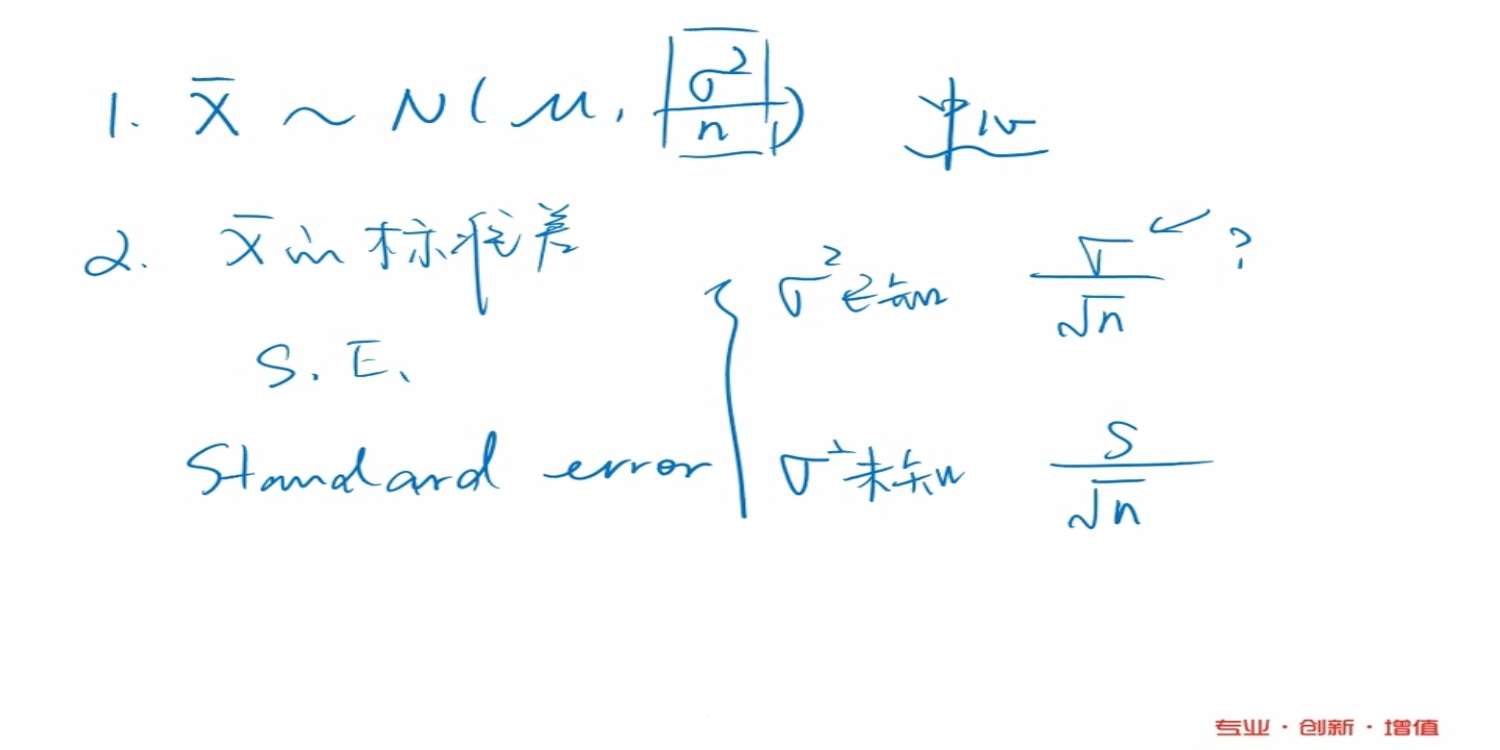 1. X̄ ~ N(μ, σ²/n) 中心
2. X̄的标准差
S.E.
Standard error
σ²已知 σ/√n ← ?
σ²未知 S/√n
专业·创新·增值